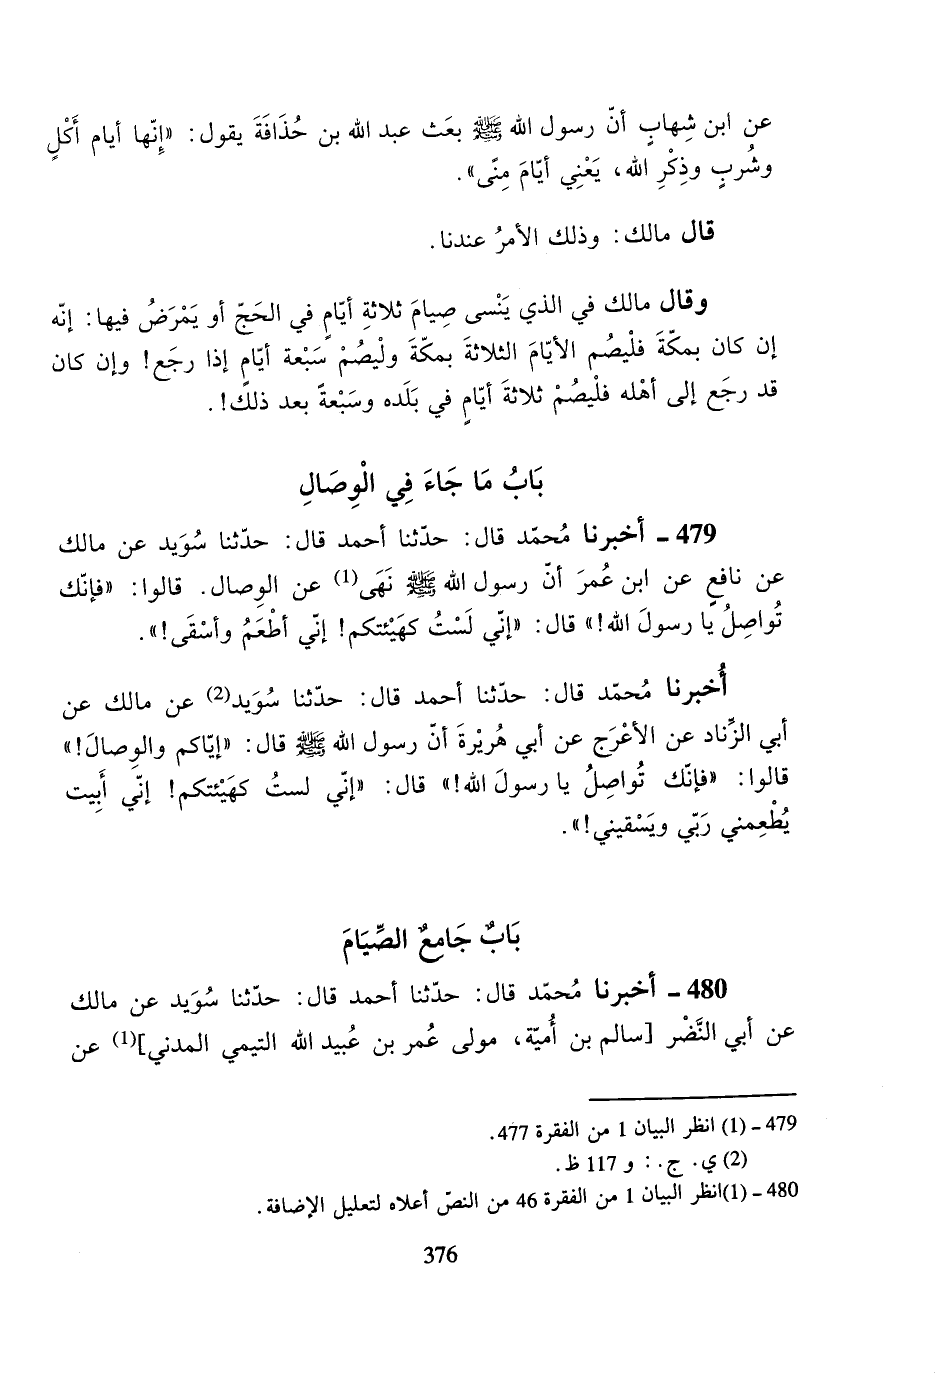 عن ابن شِهابٍ أنّ رسول الله ﷺ بعَث عبد الله بن حُذَافَةَ يقول: «إنّها أيام أَكْلٍ
وشُربٍ وذِكْرِ الله، يَعْنِي أيّامَ مِنًى».
قال مالك: وذلك الأمرُ عندنا.
وقال مالك في الذي يَنْسى صِيامَ ثلاثةِ أيّامٍ في الحَجّ أو يَمْرَضُ فيها: إنّه
إن كان بمكّةَ فلْيصُم الأيّامَ الثلاثةَ بمكّةَ ولْيصُمْ سَبْعة أيّامٍ إذا رجَع! وإن كان
قد رجَع إلى أهْله فلْيصُمْ ثلاثةَ أيّامٍ في بَلَده وسَبْعةً بعد ذلك!.
بَابُ مَا جَاءَ فِي الْوِصَالِ
479 ـ أخبرنا مُحمّد قال: حدّثنا أحمد قال: حدّثنا سُوَيد عن مالك
عن نافعٍ عن ابن عُمرَ أنّ رسول الله ﷺ نَهَى(1) عن الوِصال. قالوا: «فإنّك
تُواصِلُ يا رسولَ الله!» قال: «إنّي لَسْتُ كهَيْئتكم! إنّي أطْعَمُ وأسْقَى!».
أُخبرنا مُحمّد قال: حدّثنا أحمد قال: حدّثنا سُوَيد(2) عن مالك عن
أبي الزِّناد عن الأعْرَج عن أبي هُريْرةَ أنّ رسول الله ﷺ قال: «إيّاكم والوِصالَ!»
قالوا: «فإنّك تُواصِلُ يا رسولَ الله!» قال: «إنّي لستُ كهَيْئتكم! إنّي أَبِيت
يُطْعِمني رَبّي ويَسْقيني!».
بَابٌ جَامِعٌ الصِّيَامَ
480 ـ أخبرنا مُحمّد قال: حدّثنا أحمد قال: حدّثنا سُوَيد عن مالك
عن أبي النَّضْر [سالم بن أُميّة، مولى عُمر بن عُبيد الله التيمي المدني](1) عن
479 ـ (1) انظر البيان 1 من الفقرة 477.
(2) ي. ج.: و 117 ظ.
480 ـ (1)انظر البيان 1 من الفقرة 46 من النصّ أعلاه لتعليل الإضافة.
376